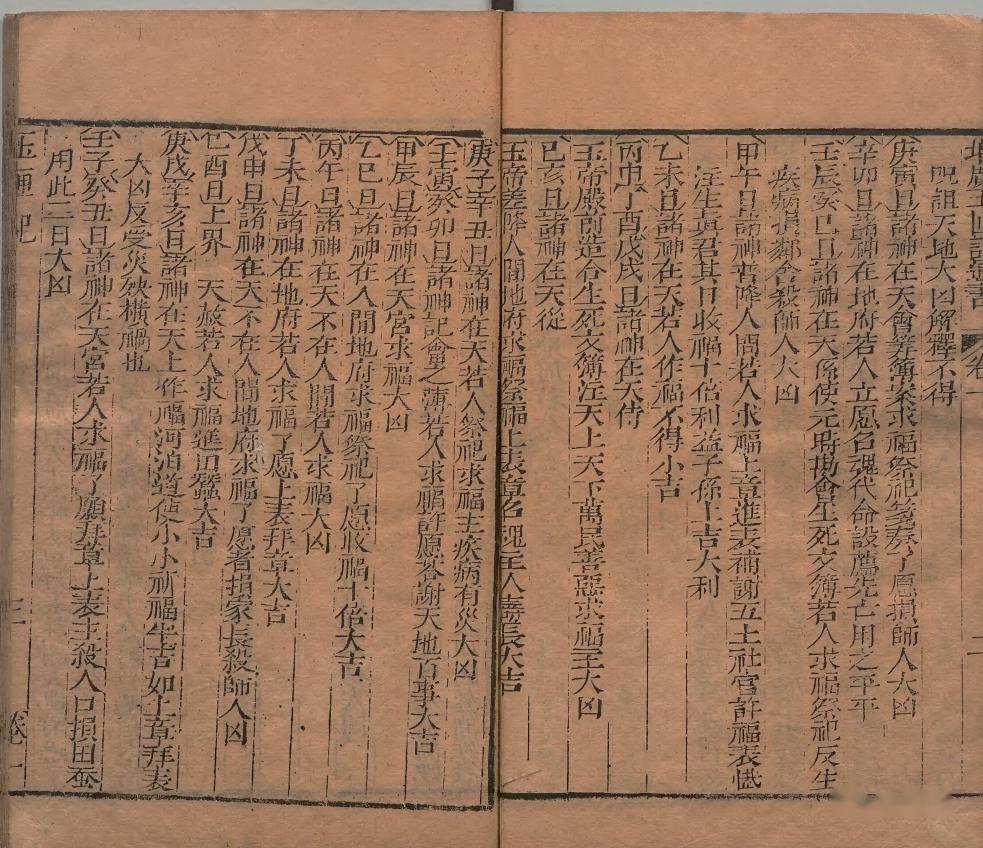 呪詛天地大凶解釋不得
庚寅日諸神在天會筭簿案求福祭祀箋奏了愿損師人大凶
辛卯日諸神在地府若人立愿名魂代命設薦先亡用之平平
壬辰癸巳日諸神在天係使元將場會生死文簿若人求福祭祀反生
疾病損鄰舍殺師人大凶
甲午日諸神書降人間若人求福上章進表補謝五土社官許福表懺
注生真君其日收福十倍利益子孫上吉大利
乙未日諸神在天若人作福不得小吉
丙申丁酉戊戌日諸神在天侍
玉帝殿前造合生死文簿注天上天下萬民善惡求福主大凶
己亥日諸神在天從
玉帝差降人間地府求福祭福上表章名魂主人壽長大吉
庚子辛丑日諸神在天若人祭祀求福主疾病有災大凶
壬寅癸卯日諸神記會之簿若人求福許愿荅謝天地百事大吉
甲辰日諸神在天宮求福大凶
乙巳日諸神在人間地府求福祭祀了愿收福十倍大吉
丙午日諸神在天不在人間若人求福大凶
丁未日諸神在地府若人求福了愿上表拜章大吉
戊申日諸神在天不在人間地府求福了愿者損家長殺師人凶
己酉日上界 天赦若人求福進田蠶大吉
庚戌辛亥日諸神在天上作福河泊道使小小祈福生吉如上章拜表
大凶反受災殃橫禍也
壬子癸丑日諸神在天宮若人求福了願拜章上表主殺人口損田蚕
用此二日大凶
玉匣記
三